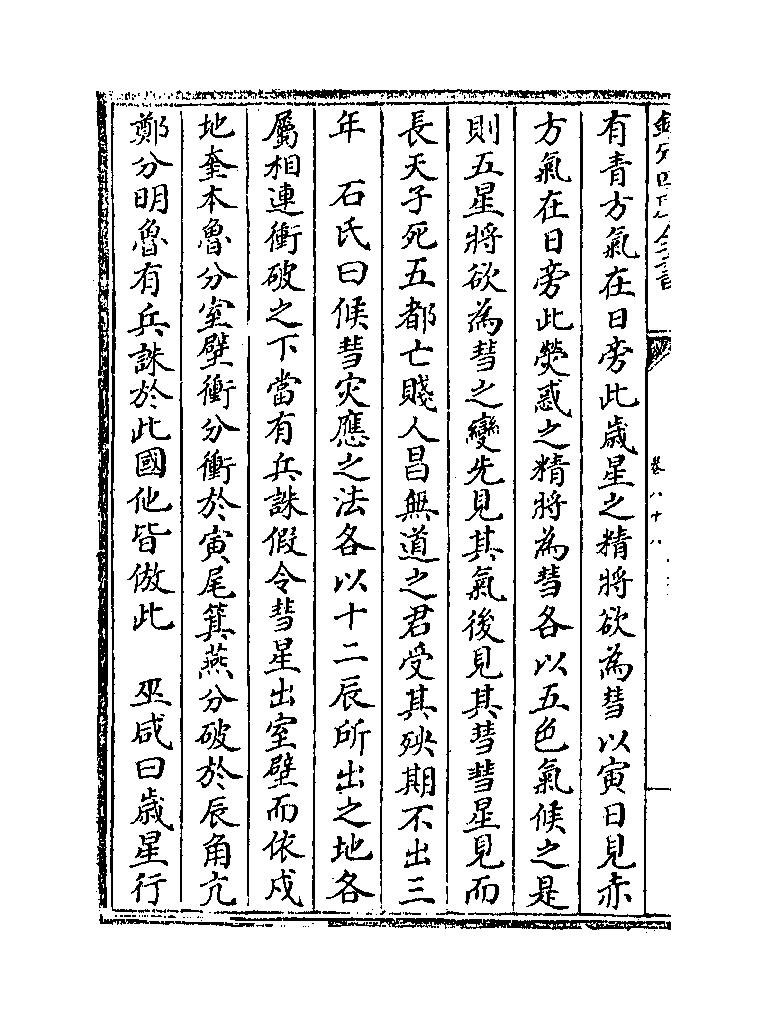 卷八十八
有青方氣在日旁此歲星之精將欲為彗以寅日見赤
方氣在日旁此熒惑之精將為彗各以五色氣候之是
則五星將欲為彗之變先見其氣後見其彗彗星見而
長天子死五都亡賤人昌無道之君受其殃期不出三
年　石氏曰候彗灾應之法各以十二辰所出之地各
屬相連衝破之下當有兵誅假令彗星出室壁而依戍
地奎本魯分室壁衝分衝於寅尾箕燕分破於辰角亢
鄭分明魯有兵誅於此國他皆倣此　巫咸曰歲星行